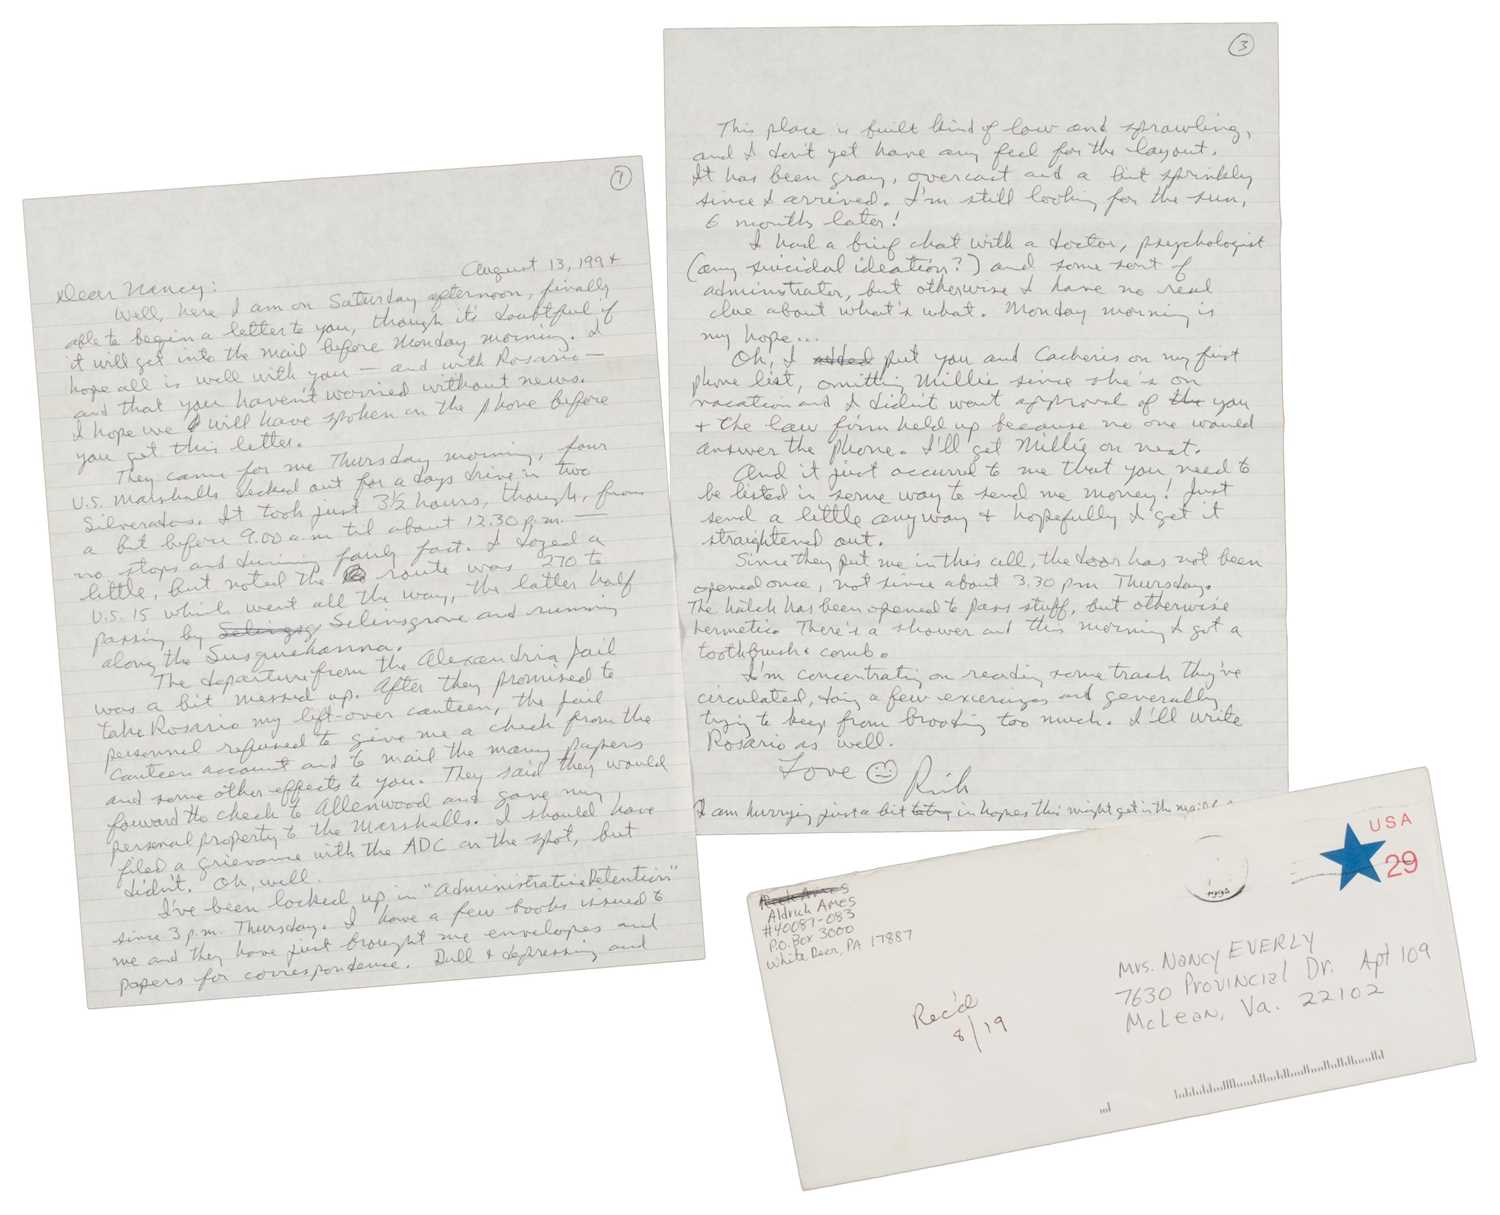 1
August 13, 1994
Dear Nancy:
Well, here I am on Saturday afternoon, finally
able to begin a letter to you, though it's doubtful if
it will get into the mail before Monday morning. I
hope all is well with you — and with Rosario —
and that you haven't worried without news.
I hope we will have spoken on the phone before
you get this letter.
They came for me Thursday morning, four
U.S. Marshalls decked out for a days drive in two
Silverados. It took just 3½ hours, though, from
a bit before 9.00 a.m. til about 12.30 p.m. —
no stops and driving fairly fast. I dozed a
little, but noted the route was 270 to
U.S. 15 which went all the way, the latter half
passing by Selinsgrove and running
along the Susquehanna.
The departure from the Alexandria jail
was a bit messed up. After they promised to
take Rosario my left-over canteen, the jail
personnel refused to give me a check from the
canteen account and to mail the many papers
and some other effects to you. They said they would
forward the check to Allenwood and gave my
personal property to the Marshalls. I should have
filed a grievance with the ADC on the spot, but
didn't. Oh, well.
I've been locked up in "Administrative Detention"
since 3 p.m. Thursday. I have a few books issued to
me and they have just brought me envelopes and
papers for correspondence. Dull & depressing and
3
This place is built kind of low and sprawling,
and I don't yet have any feel for the layout.
It has been gray, overcast and a bit sprinkly
since I arrived. I'm still looking for the sun,
6 months later!
I had a brief chat with a doctor, psychologist
(any suicidal ideation?) and some sort of
administrator, but otherwise I have no real
clue about what's what. Monday morning is
my hope...
Oh, I added put you and Cacheris on my first
phone list, omitting Millie since she's on
vacation and I didn't want approval of the you
+ the law firm held up because no one would
answer the phone. I'll get Millie on next.
And it just occurred to me that you need to
be listed in some way to send me money! Just
send a little anyway + hopefully I get it
straightened out.
Since they put me in this cell, the door has not been
opened once, not since about 3.30 pm Thursday.
The hatch has been opened to pass stuff, but otherwise
hermetic. There's a shower and this morning I got a
toothbrush & comb.
I'm concentrating on reading some trash they've
circulated, doing a few exercizes and generally
trying to keep from brooding too much. I'll write
Rosario as well.
Love Rick
I am hurrying just a bit in hopes this might get in the mail
USA
29
1994
Rick Ames
Aldrich Ames
#40087-083
P.O. Box 3000
White Deer, PA 17887
Rec'd
8/19
Mrs. Nancy EVERLY
7630 Provincial Dr. Apt 109
McLean, Va. 22102